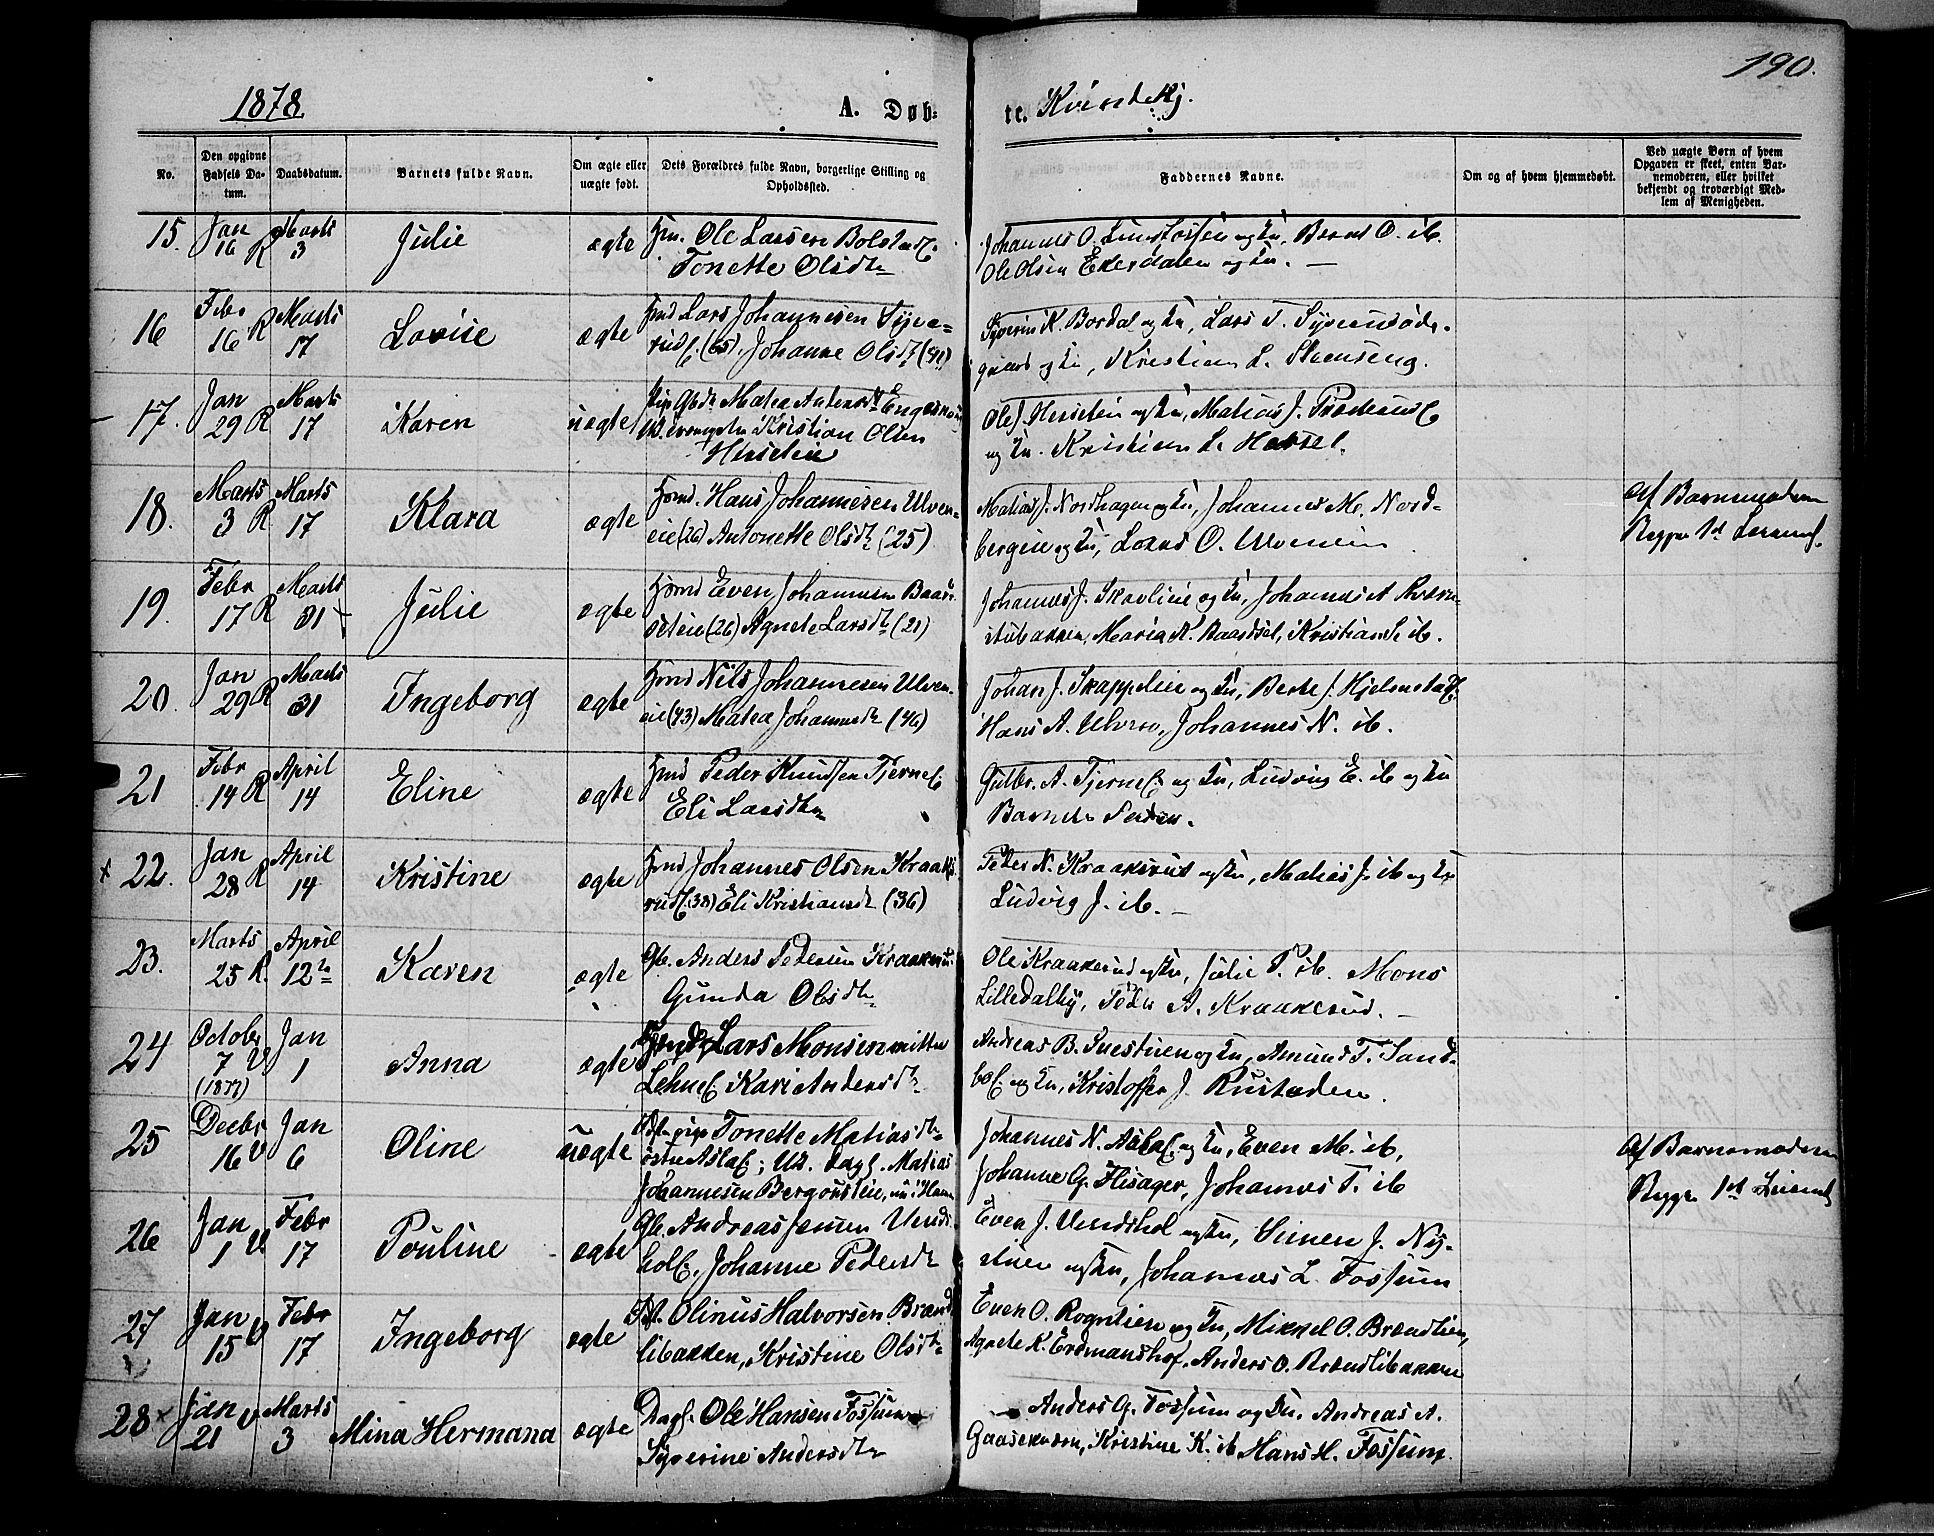 190.
1878
A. Døb-
te. Kvindekj.
No.
Den opgivne Fødsels Datum.
Daabsdatum.
Barnets fulde Navn.
Om ægte eller uægte født.
Dets Forældres fulde Navn, borgerlige Stilling og Opholdssted.
Faddernes Navne.
Om og af hvem hjemmedøbt.
Ved uægte Børn af hvem
Opgaven er skeet, enten Bar-
nemoderen, eller hvilket
bekjendt og troværdigt Med-
lem af Menigheden.
15. Jan 16 R Marts 3 Julie ægte
Ole Larsen Bolstad
Tonette Olsdtr
Ole Olsen Ekersdalen og Ku. —
16 Febr 16 R Marts 17 Lovise ægte
Lars Johannesen Syve-
rud (65), Johanne Olsdtr (41)
Syverin K. Bordal og Ku, Lars T. Syverudøde-
gaard og Ku, Kristian L. Steenseng.
17. Jan 29 R Marts 17 Karen uægte
Kristian Olsen
Herseleie
Ole J. Herseleie og Ku, Matias J.
og Ku. Kristian L. Hersel.
18. Marts 3 R Marts 17 Klara ægte
Hmd. Hans Johannesen Ulven-
eie (26) Antonette Olsdtr (25)
Matias J. Nordhagen og Ku, Johannes M. Nord-
bergeie og Ku, Lars O. Ulveneie
Af Barnemoderen
Begges 1st Leierm.
19. Febr 17 R Marts 31 Julie ægte
Hmd Even Johannesen Baard-
seteie (26) Agnete Larsdtr (21)
Johannes J. Skavlieie og Ku, Johannes A
stubakken, Maria A. Baardset, Kristian S. ib.
20. Jan 29 R Marts 31 Ingeborg ægte
Hmd Nils Johannesen Ulven-
eie (43) Matea Johannesdtr (46)
Johan J. Skappeleie og Ku, Berte J. Hjelmstad
Hans A. Ulven, Johannes N. ib.
21 Febr 14 R April 14 Eline ægte
Hmd Peder Knudsen Tjerne
Eli Larsdtr
Gulbr. A. Tjerne og Ku, Ludvig E. ib og Ku
Barnets Fader.
22. Jan 28 R April 14 Kristine ægte
Hmd Johannes Olsen Kraaks-
rud (38) Eli Kristiansdtr (36)
Peder N. Kraaksrud og Ku, Matias J. ib og Ku
Ludvig J. ib. —
23. Marts 25 R. April 12te Karen ægte
Gb. Anders Pedersen Kraakerud
Gunda Olsdtr
Ole Kraakerud og Ku, Julie P. ib. Mons
Lilledalby, Peder A. Kraakerud. —
24 October 7 V (1877) Jan 1 Anna ægte
Lars Monsen
Kari Andersdtr
Andreas B. Snestuen og Ku, Amund T. Sand-
bol. og Ku, Kristoffer J. Rustaden.
25 Decbr 16 V Jan 6 Oline uægte
Tonette Matiasdtr
Matias
Johannesen Bergorsteie,
Johannes N. Asla og Ku, Even M. ib,
Johanne G. Flisager, Johannes T. ib
Af Barnemoderen
Begges 1st Leierm
26 Jan 1 V Febr 17 Pouline ægte
Gb. Andreas Jensen Vends-
hol, Johanne Pedersdtr
Even J. Vendshol og Ku, Simen J. Ny-
stuen og Ku, Johannes L. Fossum
27 Jan 15 V Febr 17 Ingeborg ægte
Olinus Halvorsen Brænd-
libakken, Kristine Olsdtr
Even O. Rognlien og Ku, Mikkel O. Brændlien,
Agnete K. Erdmanshof, Anders O. Brændlibakken
28 Jan 21 V Marts 3 Mina Hermana ægte
Dagl. Ole Hansen Fossum
Syverine Andersdtr
Anders G. Fossum og Ku. Andreas A.
Gaasekværn, Kristine K. ib Hans H. Fossum.